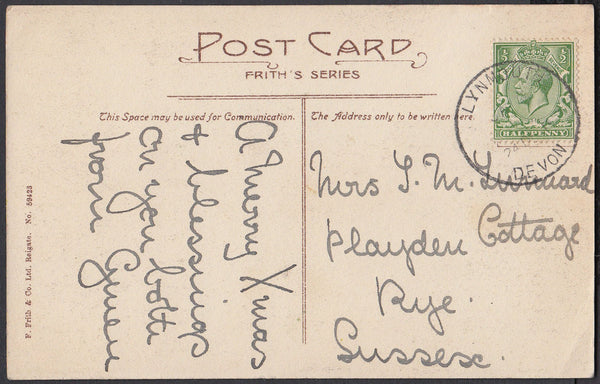 POST CARD
FRITH'S SERIES
This Space may be used for Communication.
The Address only to be written here.
A Merry Xmas
& blessings
on you both
from Gwen
Mrs T. M.
Playden Cottage
Rye.
Sussex.
½ ½
HALFPENNY
LYNMOUTH
DEVON
F. Frith & Co. Ltd. Reigate. No. 59423